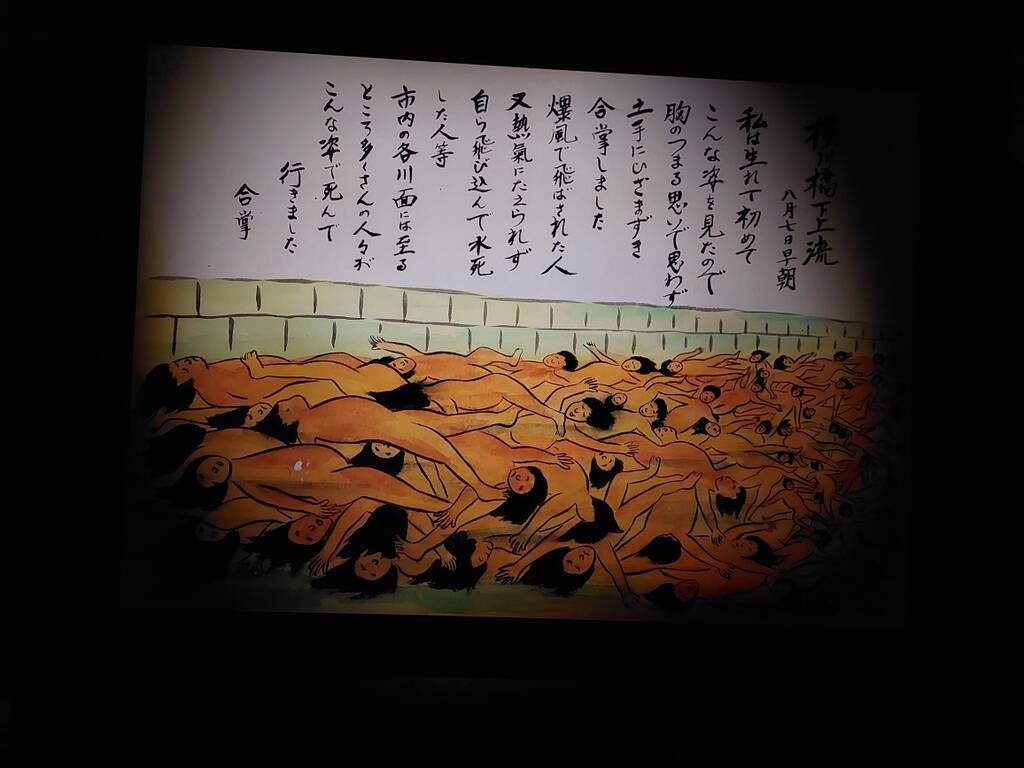 横川橋下上流
八月七日早朝
私は生れて初めて
こんな姿を見たので
胸のつまる思いで思わず
土手にひざまずき
合掌しました
爆風で飛ばされた人
又熱氣にたえられず
自ら飛び込んで水死
した人等
市内の各川面には至る
ところ多くさんの人々が
こんな姿で死んで
行きました
合掌